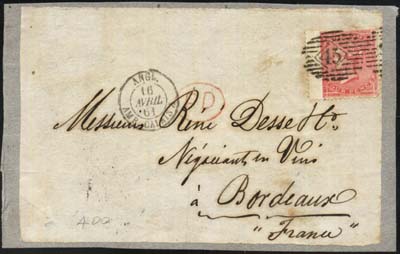 ANGL.
16
AVRIL
61
AMB. CALAIS
PD
15
Messieurs René Desse & Co.
Négociants en Vins
à Bordeaux
"France"
400